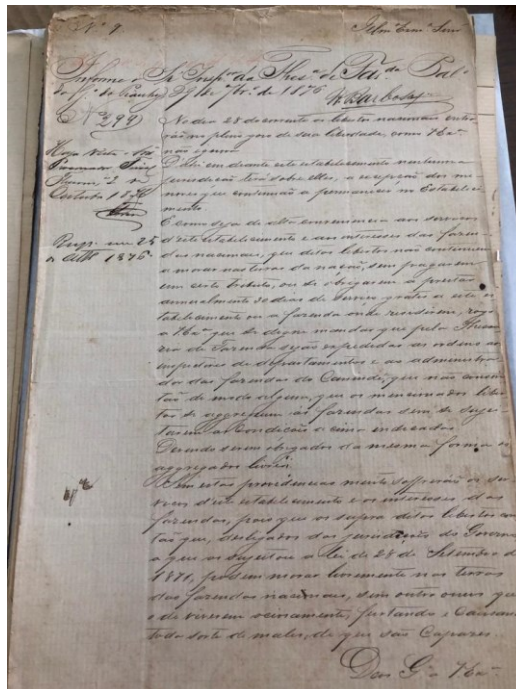 Nº 9
Illmº Exmº Senr
Informe o Sr. Inspor da Thesª de Fazª. Palº
do Gº do Piauhy 29 de 7brº de 1876
Barbosa
Nº 299
No dia 28 do corrente os libertos nacionaes entra-
rão no pleno goso de sua liberdade, como V Exª
não ignora.
D'ahi em diante este estabelecimento nenhuma
jurisdicção terá sobre elles, a excepção dos me-
nores que continuão a permanecer no Estabeleci-
mento.
E como seja de alta conveniencia aos servicos
d'este estabelecimento e aos interesses das fazen-
das nacionaes, que ditos libertos não continuem
a morar nas terras da nação, sem pagarem
um certo tributo, ou se obrigarem a prestar
annualmente 30 dias de serviço gratis a este es-
tabelecimento ou a fazenda onde residirem, rogo
a V Exª que se digne mandar que pela Thesou-
raria de Fazenda sejão expedidas as ordens aos
inspectores de departamentos e ao administra-
dor das fazendas de Canindé, que não consin-
tão de modo algum, que os mencionados liber-
tos se aggreguem ás fazendas sem se sugei-
tarem a condição a cima indicada.
Devendo serem obrigados da mesma forma os
aggregados livres.
Sem estas providencias muito soffrerão os ser-
viços d'este estabelecimento e os interesses das
fazendas, pois que os supra ditos libertos con-
tão que, desligados da jurisdicção do Governo
a que os sujeitou a Lei de 28 de Setembro de
1871, podem morar livremente nas terras
das fazendas nacionaes, sem outro onus que
o de viverem ociosamente, furtando e causando
toda sorte de males, de que são capazes.
Deos Gº a V Exª
Haja vista o Sr.
Procurador Fiscal
2 de
Outubro 1876
Resp. em 25
de Outº 1876